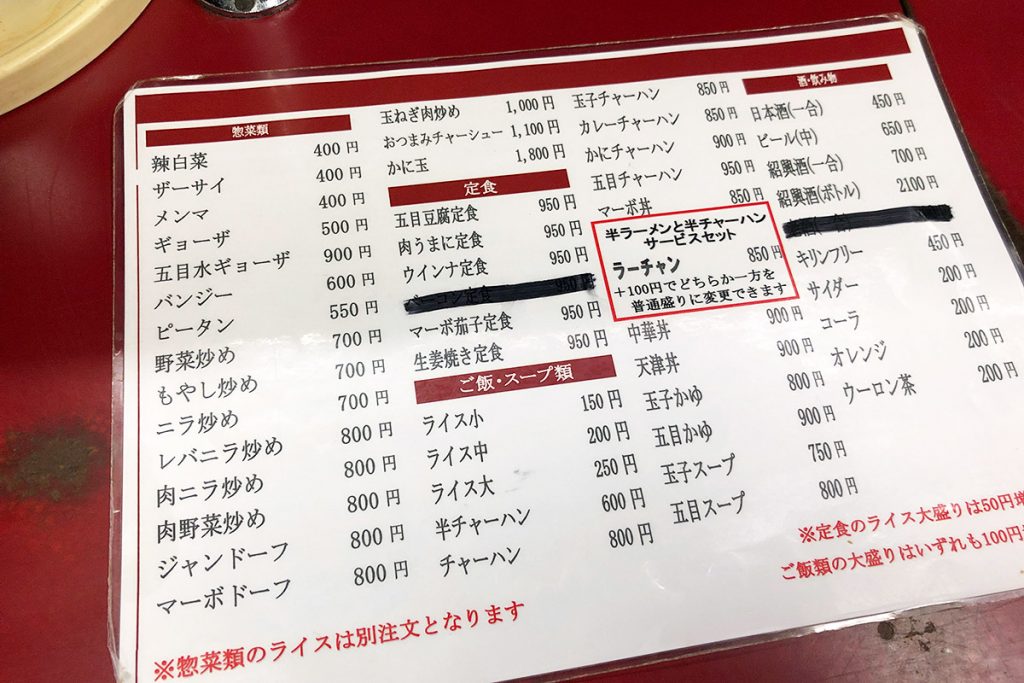 惣菜類
辣白菜 400円
ザーサイ 400円
メンマ 400円
ギョーザ 500円
五目水ギョーザ 900円
バンジー 600円
ピータン 550円
野菜炒め 700円
もやし炒め 700円
ニラ炒め 700円
レバニラ炒め 800円
肉ニラ炒め 800円
肉野菜炒め 800円
ジャンドーフ 800円
マーボドーフ 800円
※惣菜類のライスは別注文となります
玉ねぎ肉炒め 1,000円
おつまみチャーシュー 1,100円
かに玉 1,800円
定食
五目豆腐定食 950円
肉うまに定食 950円
ウインナ定食 950円
ベーコン定食 950円
マーボ茄子定食 950円
生姜焼き定食 950円
ご飯・スープ類
ライス小 150円
ライス中 200円
ライス大 250円
半チャーハン 600円
チャーハン 800円
玉子チャーハン 850円
カレーチャーハン 850円
かにチャーハン 900円
五目チャーハン 950円
マーボ丼 850円
半ラーメンと半チャーハン
サービスセット
ラーチャン 850円
+100円でどちらか一方を
普通盛りに変更できます
中華丼 900円
天津丼 900円
玉子かゆ 800円
五目かゆ 900円
玉子スープ 750円
五目スープ 800円
酒・飲み物
日本酒(一合) 450円
ビール(中) 650円
紹興酒(一合) 700円
紹興酒(ボトル) 2100円
キリンフリー 450円
サイダー 200円
コーラ 200円
オレンジ 200円
ウーロン茶 200円
※定食のライス大盛りは50円増
ご飯類の大盛りはいずれも100円